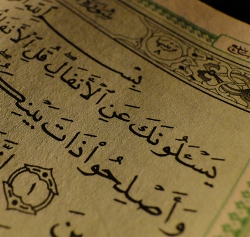 بِسْـ
يَسْـَٔلُونَكَ عَنِ ٱلْأَنفَالِ قُلِ ٱلْأَنفَا
وَأَصْلِحُوا۟ ذَاتَ بَيْنِكـ
ـينَ ١